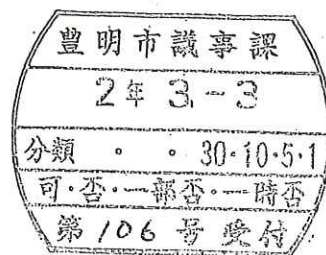 豊明市議事課
2年 3.-3
分類 ・ ・ 30・10・5・1
可・否・一部否・一時否
第106号受付